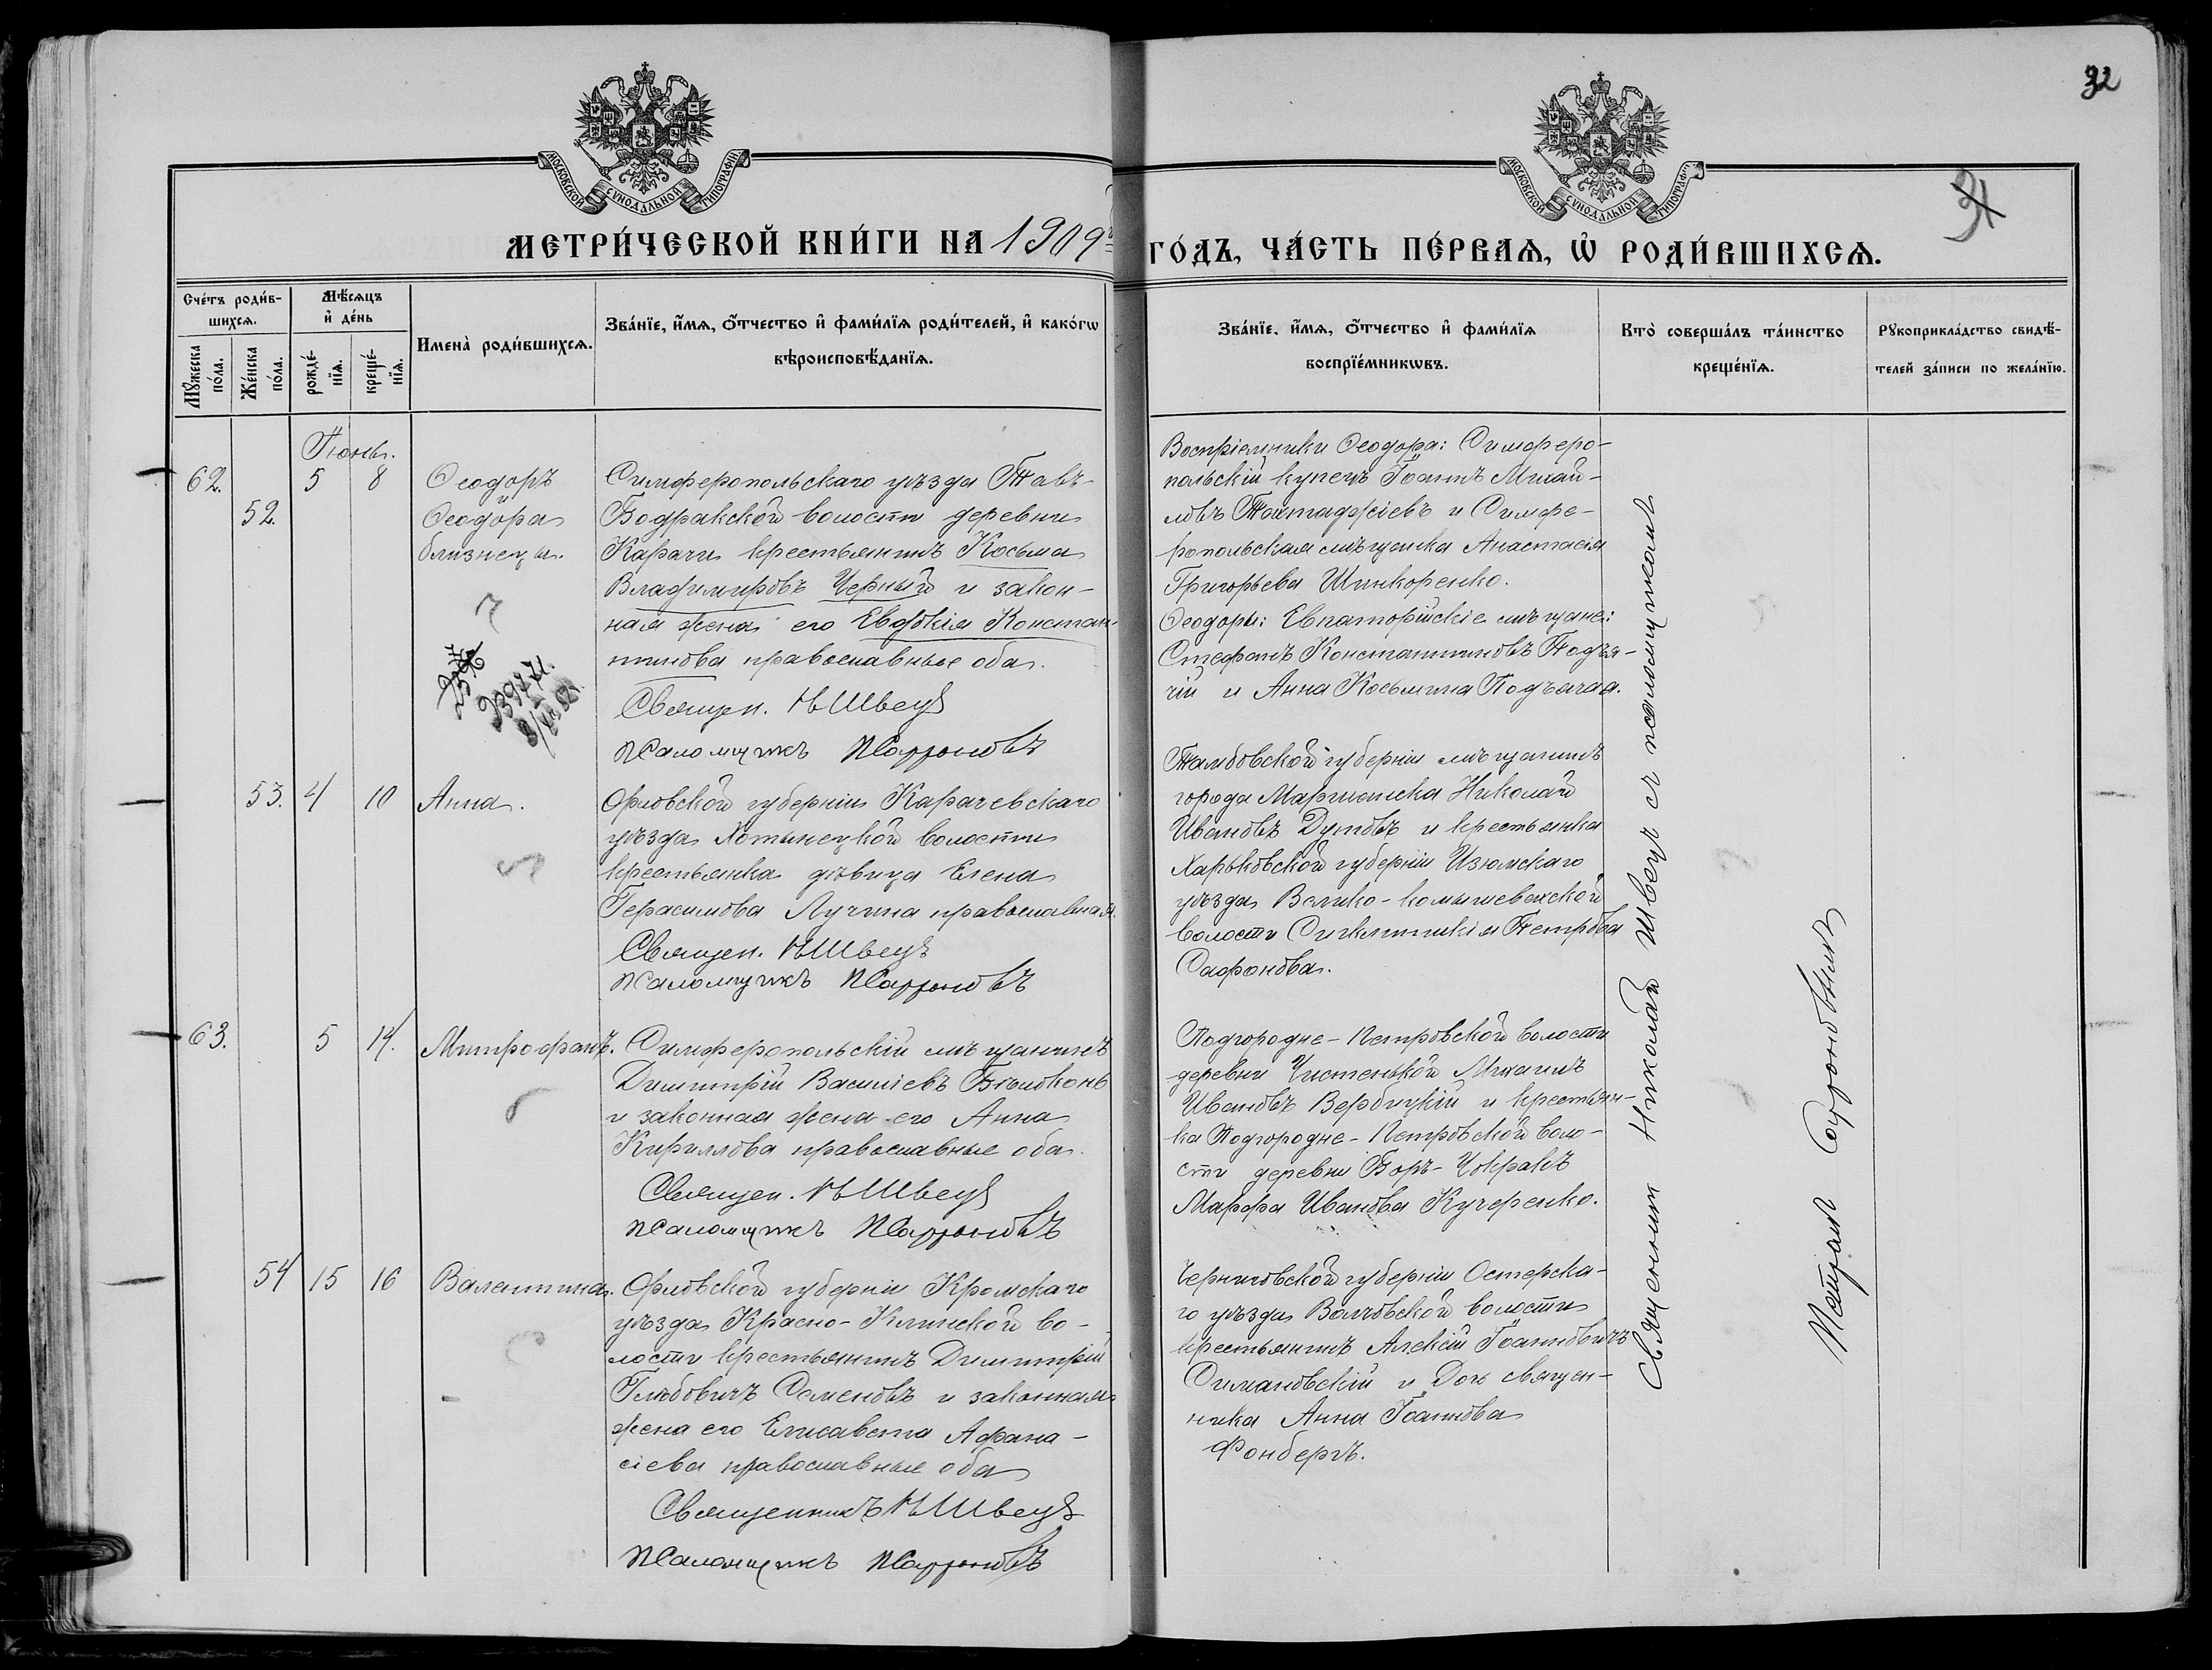 32
31
МОСКОВСКОЙ СѴНОДАЛЬНОЙ ТИПОГРАФІИ
МОСКОВСКОЙ СѴНОДАЛЬНОЙ ТИПОГРАФІИ
МЕТРИ́ЧЕСКОЙ КНИ́ГИ НА 1909 ГО́ДЪ, ЧА́СТЬ ПЕ́РВАѦ, Ѡ҆ РОДИ́ВШИХСѦ.
Сче́тъ роди́в-
шихсѧ.
Мꙋ́жеска по́ла.
Же́нска по́ла.
Мѣ́сѧцъ
и҆ де́нь
рожде́-
нїѧ.
креще́-
нїѧ.
Имена̀ роди́вшихсѧ.
Зва́нїе, и҆́мѧ, ѻ҆́тчество и҆ фами́лїѧ роди́телей, и҆ како́гѡ
вѣроисповѣ́данїѧ.
Зва́нїе, и҆́мѧ, ѻ҆́тчество и҆ фами́лїѧ
воспрїе́мникѡвъ.
Кто̀ соверша́лъ та́инство
креще́нїѧ.
Рꙋкоприкла́дство свидѣ́-
телей за́писи по жела́нїю.
Іюнь.
62. 5 8 Ѳеодоръ
52. Ѳеодора
близнецы.
Симферопольскаго уѣзда Тавъ-
Бодракской волости деревни
Карачи крестьянинъ Косьма
Владимировъ Черный и закон-
ная жена его Евдокія Констан-
тинова православные оба.
Священ. Н Швецъ
Псаломщикъ П Сафроновъ
Воспріемники Ѳеодора: Симферо-
польскій купецъ Іоаннъ Михай-
ловъ и Симфе-
ропольская мѣщанка Анастасія
Григорьева Шинкоренко.
Ѳеодоры: Евпаторійскіе мѣщане:
Стефанъ Константиновъ Подъя-
чій и Анна Косьмина Подъячая.
53. 4 10 Анна.
Орловской губерніи Карачевскаго
уѣзда Хотынецкой волости
крестьянка дѣвица Елена
Герасимова Лучина православная.
Священ. Н Швецъ
Псаломщикъ П Сафроновъ
Тамбовской губерніи мѣщанинъ
города Николай
Ивановъ Дутовъ и крестьянка
Харьковской губерніи Изюмскаго
уѣзда Велико-комышевахской
волости Синклитикія Петрова
Сафонова.
63. 5 14. Митрофанъ.
Симферопольскій мѣщанинъ
Димитрій Василіевъ Бѣлоконь
и законная жена его Анна
Кириллова православные оба.
Священ. Н Швецъ
Псаломщикъ П Сафроновъ
Подгородне-Петровской волости
деревни Чистенькой Михаилъ
Ивановъ Вербицкій и крестьян-
ка Подгородне-Петровской воло-
сти деревни Боръ-Чокракъ
Марфа Иванова Кучеренко.
54 15 16 Валентина.
Орловской губерніи Кромскаго
уѣзда Красно-Клинской во-
лости крестьянинъ Димитрій
Глѣбовичъ Семеновъ и законная
жена его Елисавета Афана-
сіева православные оба
Священникъ Н Швецъ
Псаломщикъ П Сафроновъ
Черниговской губерніи Остерска-
го уѣзда волости
крестьянинъ Алексій Іоанновичъ
Симановскій и Дочь священ-
ника Анна Іоаннова
Фонбергъ.
Священникъ Николай Швецъ съ псаломщикомъ
Сафроновымъ